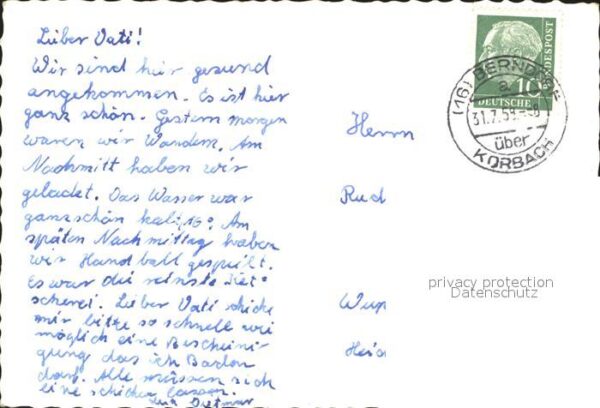 Lieber Vati!
Wir sind hier gesund
angekommen. Es ist hier
ganz schön. Gestern morgen
waren wir Wandern. Am
Nachmitt haben wir
gebadet. Das Wasser war
ganz schön kalt, 16° Am
späten Nachmittag haben
wir Handball gespielt.
Es war die reinste
scherei. Lieber Vati schicke
mir bitte so schnell wie
möglich eine Bescheini-
gung das ich Baden
darf. Alle müssen sich
eine schicken lassen.
Dein Dietmar
Herrn
Rud
Wup
Heid
DEUTSCHE BUNDESPOST
10
(16) BERNDORF
a
31.7.59.-8
über
KORBACH
privacy protection
Datenschutz